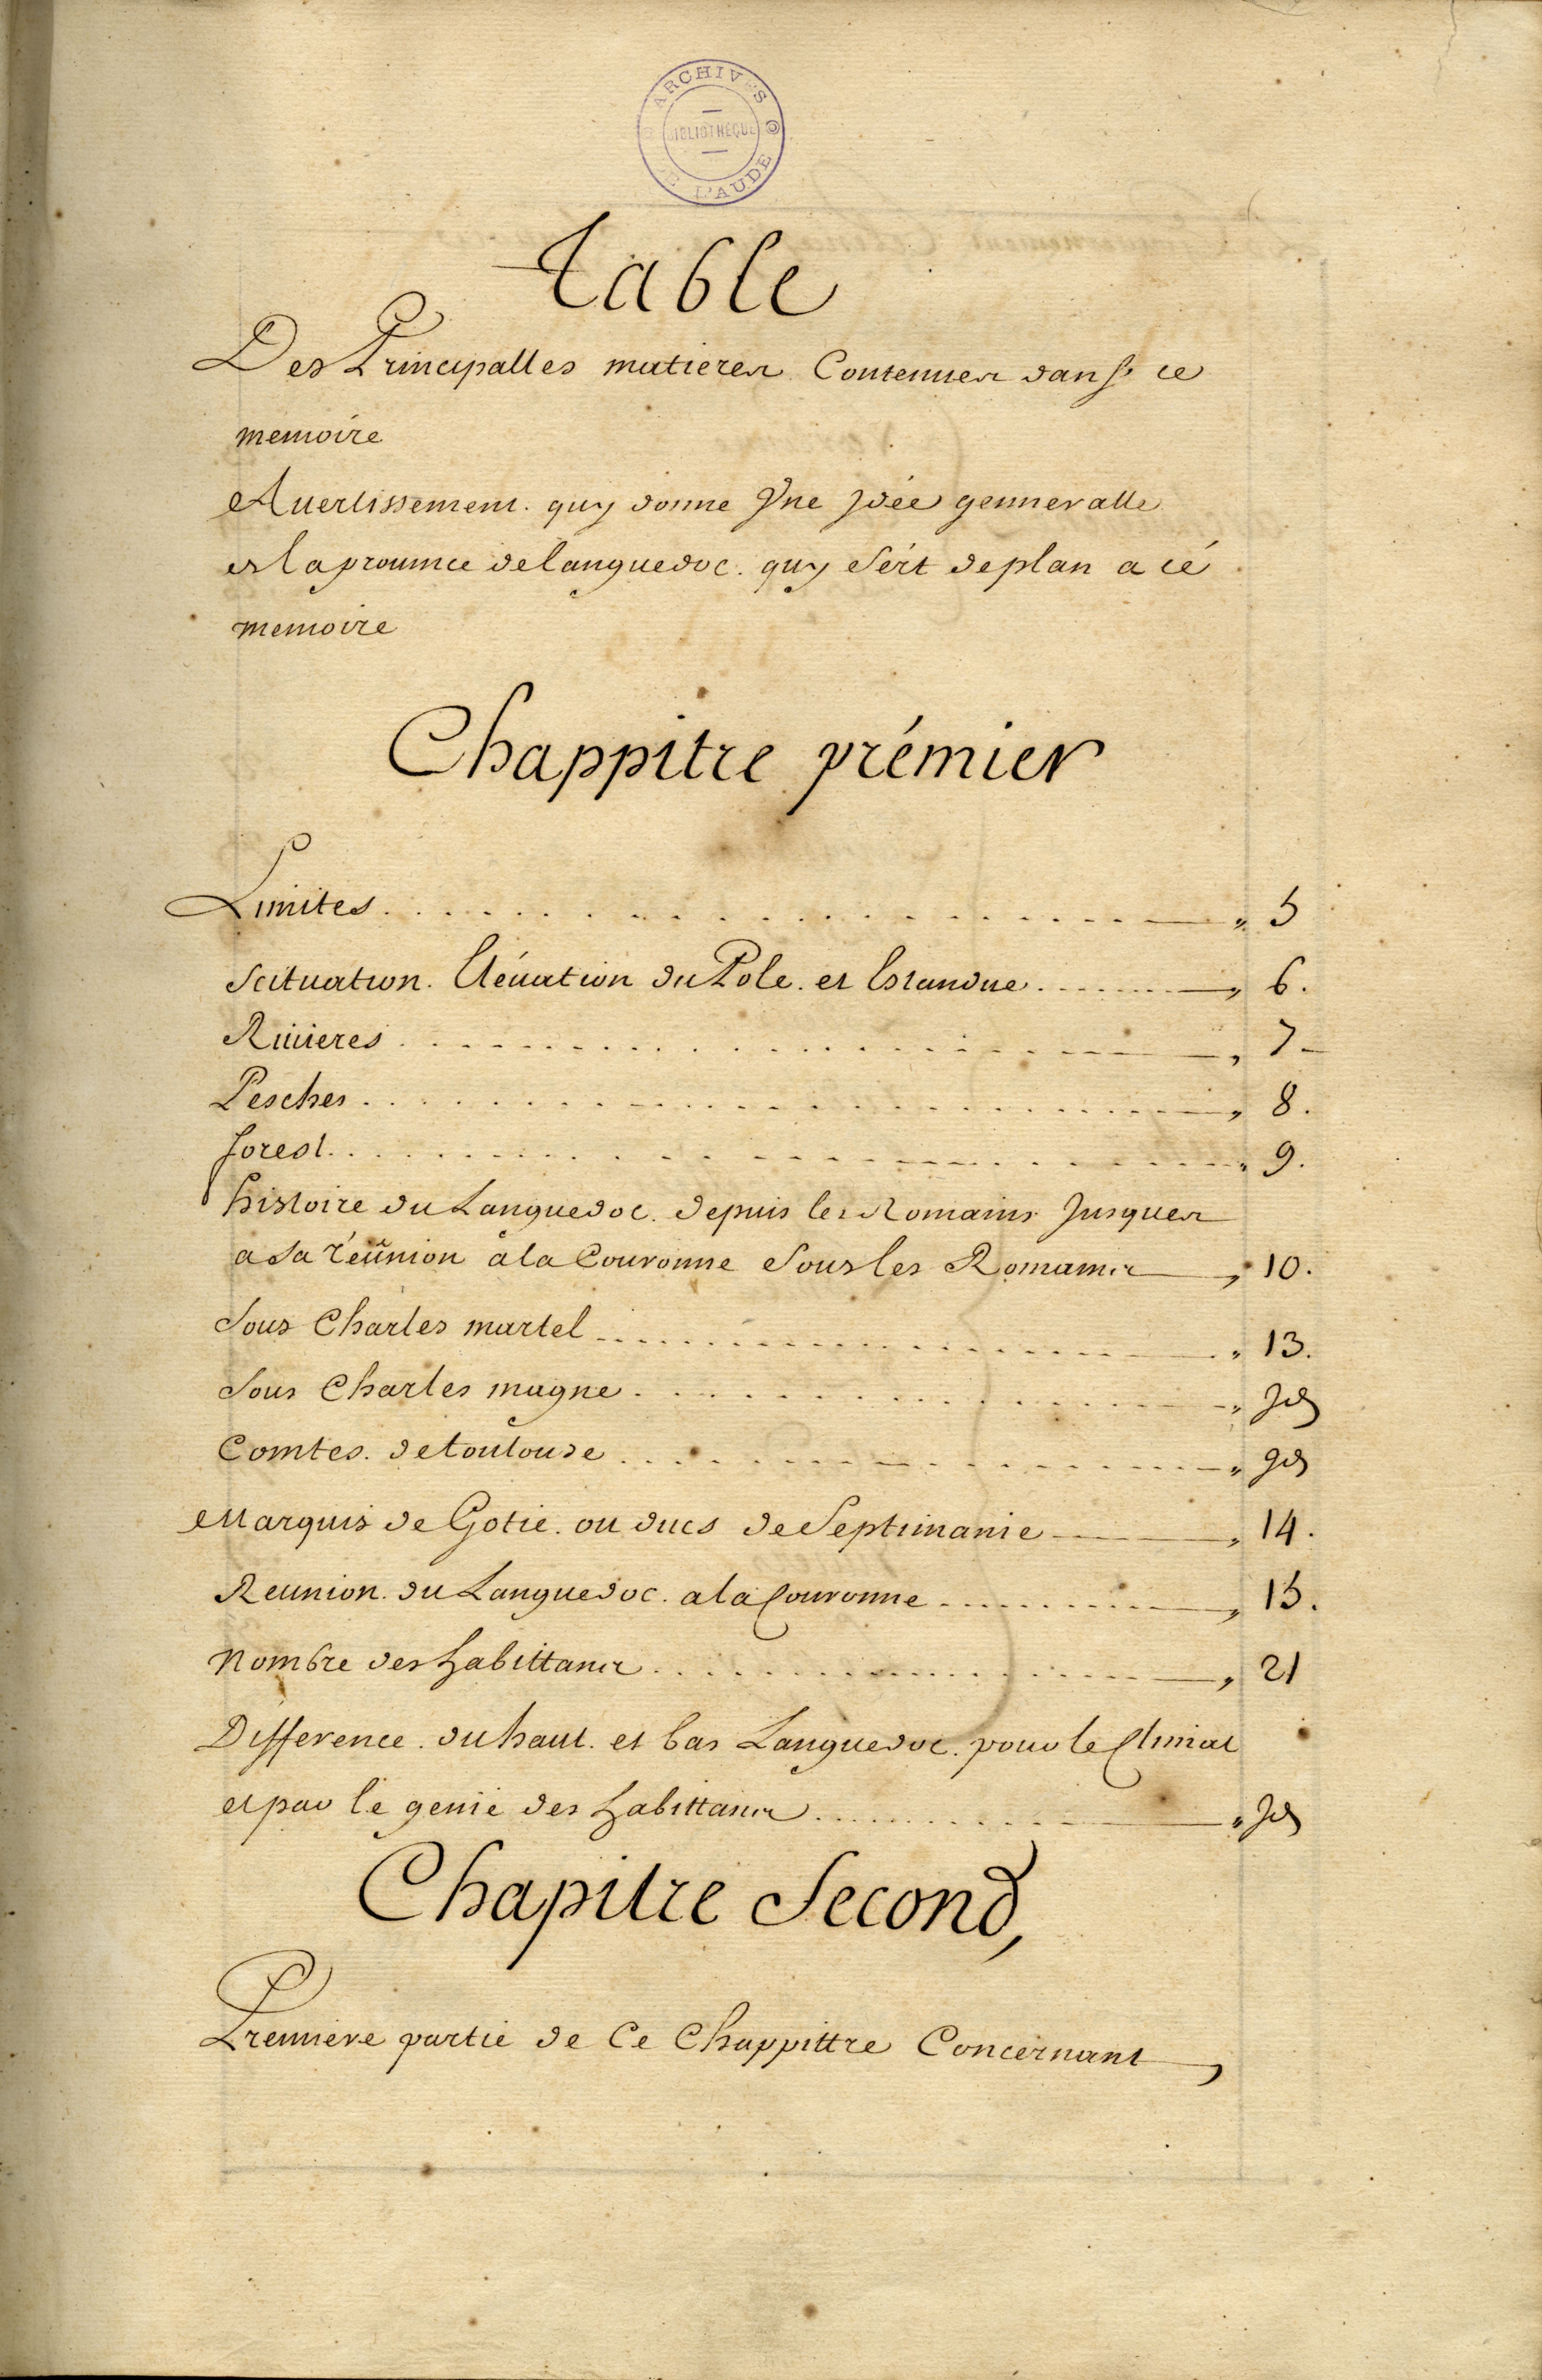 ARCHIVES DE L'AUDE
BIBLIOTHEQUE
table
Des Principalles matieres Contenues dans ce
memoire
Auertissement. quy donne Vne Jdée genneralle
es la prouince de languedoc. quy sért de plan a cé
memoire
Chappitre prémier
Limites . . . . . . . . . . . . . . . . . . . . " 5
Scituation. Eléuation du Pole. et Estandue . . . . . . . , 6.
Riuieres . . . . . . . . . . . . . . . . . . . . , 7
Pesches . . . . . . . . . . . . . . . . . . . . , 8.
forest . . . . . . . . . . . . . . . . . . . . " 9.
histoire du Languedoc. depuis les Romains Jusques
a sa réünion a la Couronne sous les Romains , 10.
sous Charles martel . . . . . . . . . . . . . . . " 13.
sous Charles magne . . . . . . . . . . . . . . . " Jd
Comtes. de toulouse . . . . . . . . . . . . . . . " Jd
Marquis de Gotie. ou ducs de Septimanie , 14.
Reunion. du Languedoc. a la Couronne . . . . . . . . . , 15.
Nombre des habittans . . . . . . . . . . . . . . , 21
Difference. du haut. et bas Languedoc. pour le Climat
et par le genie des habittans . . . . . . . . . . " Jd
Chapitre Second,
Premiere partie de Ce Chappittre Concernant ,